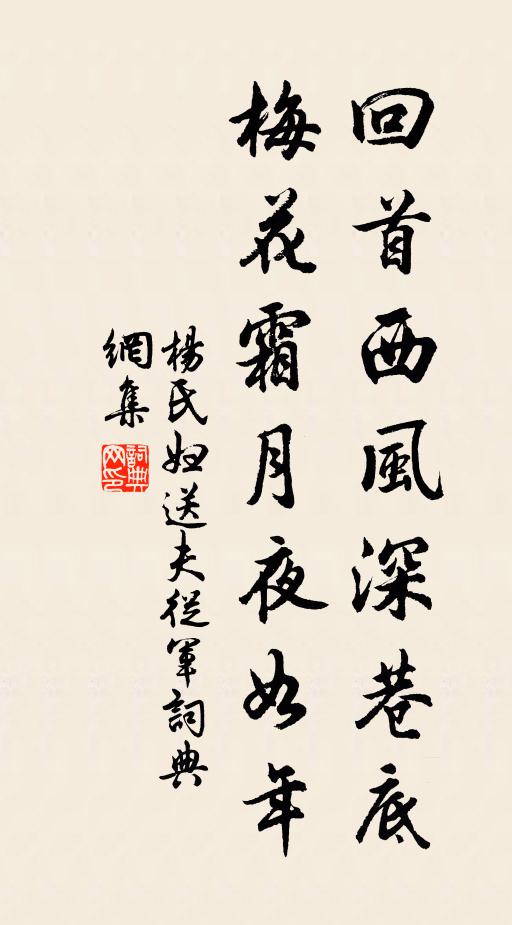 回首西風深巷底
梅花霜月夜如年
楊氏妞送夫從軍詞典
網集
詞典
网印